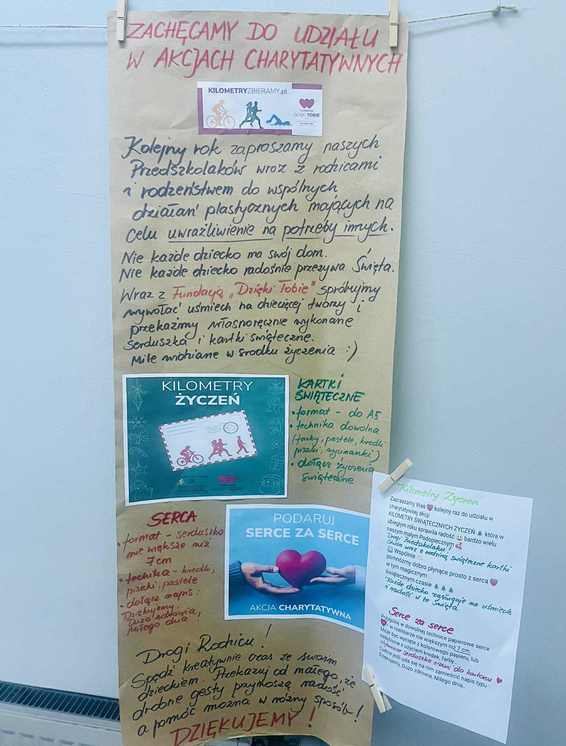 ZACHĘCAMY DO UDZIAŁU
W AKCJACH CHARYTATYWNYCH
KILOMETRYZBIERAMY.pl
Kolejny rok zapraszamy naszych
Przedszkolaków wraz z rodzicami
i rodzeństwem do wspólnych
działań plastycznych mających na
celu uwrażliwienie na potrzeby innych.
Nie każde dziecko ma swój dom.
Nie każde dziecko radośnie przeżywa Święta.
Wraz z Fundacją „Dzięki Tobie" spróbujmy
wywołać uśmiech na dziecięcej twarzy i
przekażmy własnoręcznie wykonane
serduszka i kartki świąteczne.
Mile widziane w środku życzenia :)
KILOMETRY
ŻYCZEŃ
KARTKI
ŚWIĄTECZNE
• format - do A5
• technika dowolna
(farby, pastele, kredki
pisaki, wycinanki)
• dołącz życzenia
świąteczne
SERCA
• format - serduszko
nie większe niż
7cm
• technika - kredki,
pisaki, pastele
• dołącz napis:
Dziękujemy.
Dużo zdrowia,
miłego dnia
PODARUJ
SERCE ZA SERCE
AKCJA CHARYTATYWNA
Drogi Rodzicu!
Spędź kreatywnie czas ze swoim
dzieckiem. Przekazuj od małego, że
drobne gesty przynoszą radość
a pomóc można w różny sposób!
DZIĘKUJEMY!
Kilometry Życzeń
Zapraszamy Was kolejny raz do udziału w
charytatywnej akcji
KILOMETRY ŚWIĄTECZNYCH ŻYCZEŃ, która w
ubiegłym roku sprawiła radość bardzo wielu
naszym małym Podopiecznym
Drogi Przedszkolaku!
Zrób wraz z rodziną świąteczne kartki
Wspólnie
pomóżmy dobro płynące prosto z serca
w tym magicznym
świątecznym czasie
Każde dziecko zasługuje na uśmiech
i radość w te Święta.
Serce za serce
w dowolnej technice papierowe serce
w rozmiarze nie większym niż 7 cm.
Może być wycięte z kolorowego papieru, lub